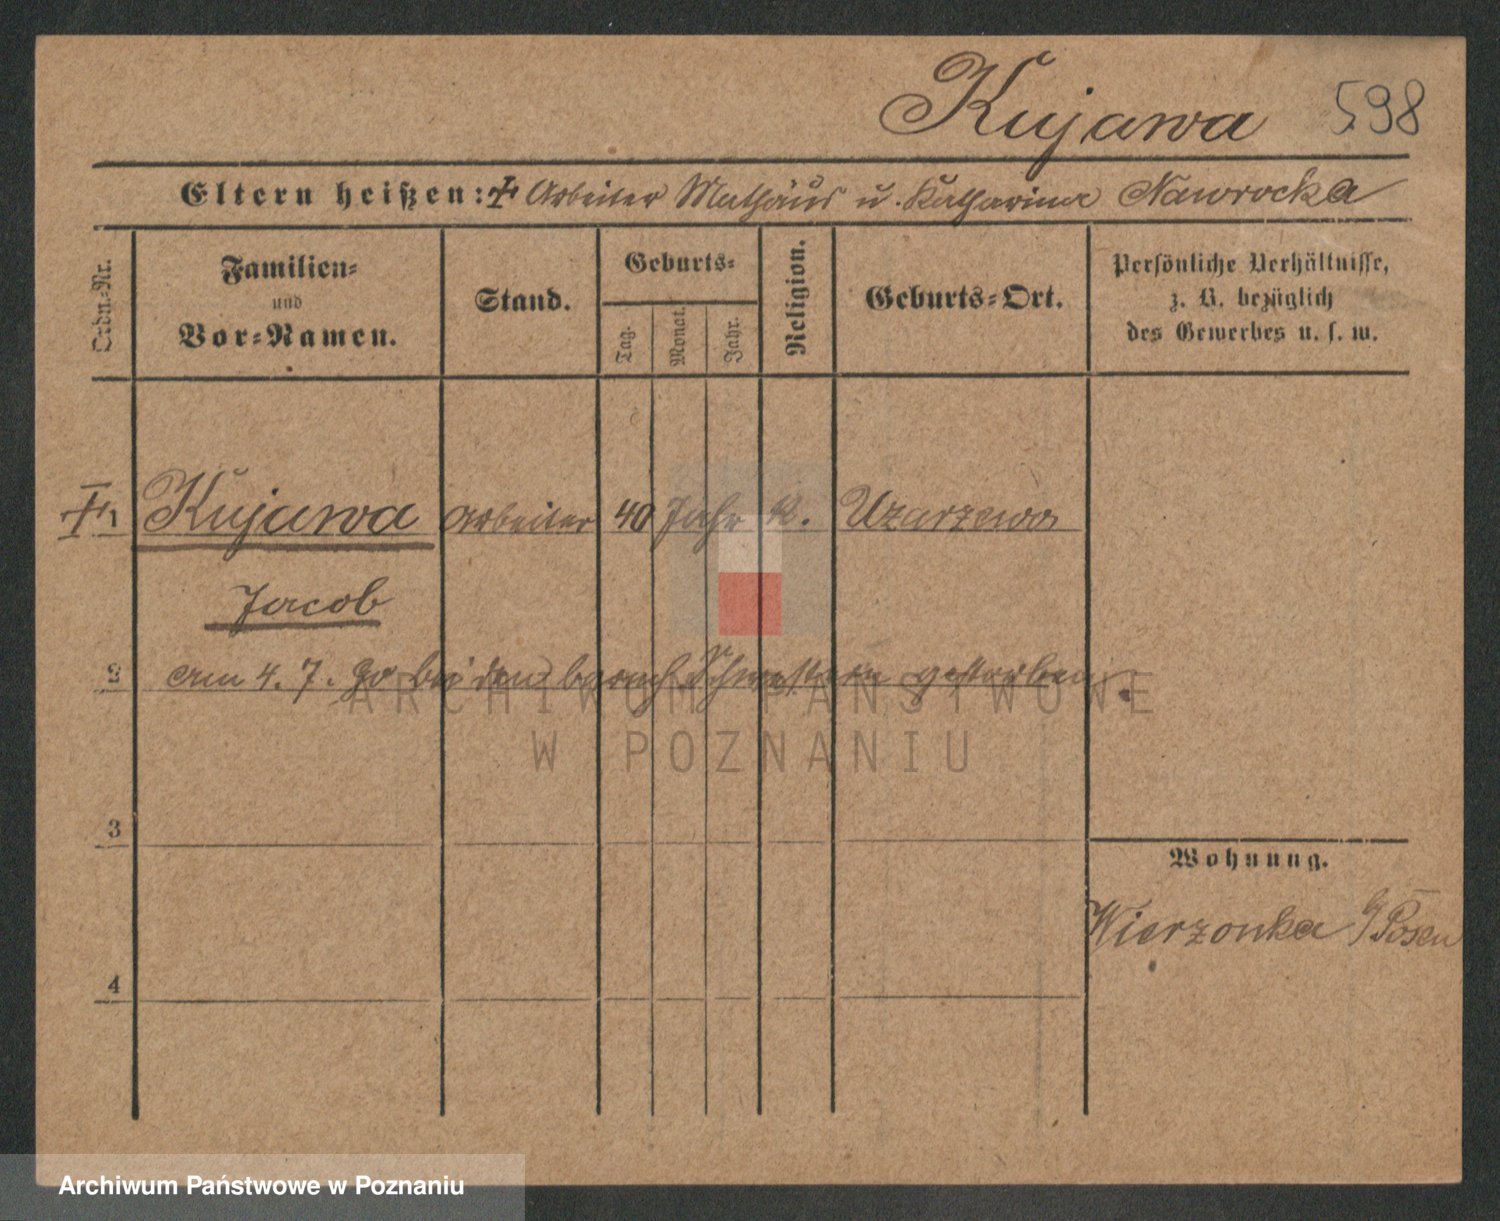 Kujawa 598
Eltern heißen: Arbeiter Mathäus u. Katharina Nawrocka
Ordn.-Nr.
Familien-
und
Vor-Namen.
Stand.
Geburts-
Tag.
Monat.
Jahr.
Religion.
Geburts-Ort.
Persönliche Verhältnisse,
z. B. bezüglich
des Gewerbes u. s. w.
1 Kujawa Arbeiter 40 Jahr K. Uzarzewo
Jacob
2 am 4. 7. 90 bei den barmh Schwestern gestorben.
3
Wohnung.
Wierzonka Posen
4
ARCHIWUM PAŃSTWOWE
W POZNANIU
Archiwum Państwowe w Poznaniu